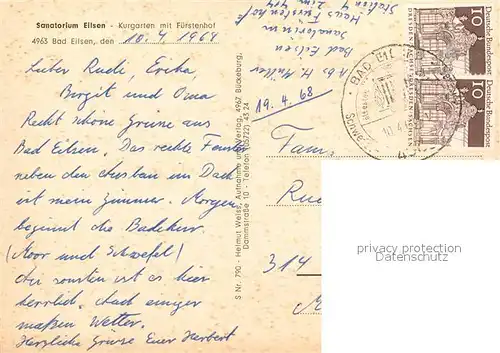 Sanatorium Eilsen - Kurgarten mit Fürstenhof
4963 Bad Eilsen, den 10. 4. 1969
Lieber Rudi, Erika,
Birgit und Oma
Recht schöne Grüsse aus
Bad Eilsen. Das rechte Fenster
neben den Ausbau im Dach
ist mein Zimmer. Morgen
beginnt die Badekur
(Moor und Schwefel)
Ansonsten ist es hier
herrlich. Auch einiger
maßen Wetter.
Herzliche Grüsse Euer Herbert
S Nr. 790 - Helmut Weiss, Aufnahme und Verlag, 4967 Bückeburg,
Dammstraße 10 - Telefon (05722) 43 24
H. Müller
Bad Eilsen
Sanatorium
Haus Fürstenhof
Station 4
19. 4. 68
BAD EIL
Deutsche Bundespost
10
DRESDEN
Deutsche Bundespost
10
DRESDEN
Fam
Rud
314
privacy protection
Datenschutz